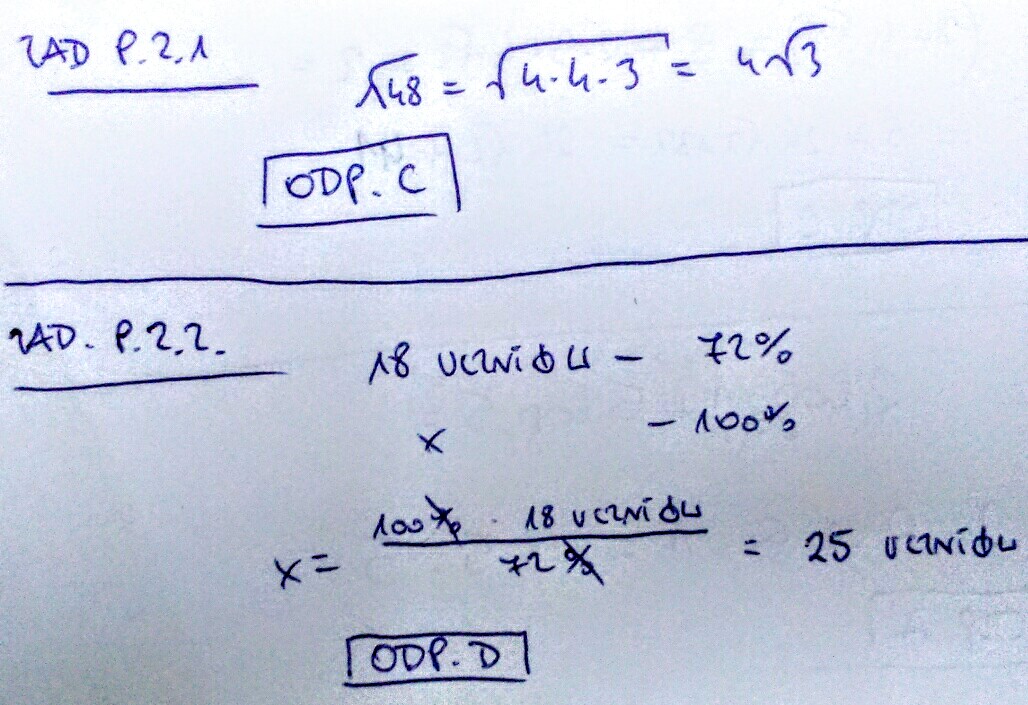 ZAD P.2.1
√48 = √4·4·3 = 4√3
ODP. C
ZAD. P.2.2.
18 UCZNIÓW – 72%
x – 100%
x = 100% · 18 UCZNIÓW / 72% = 25 UCZNIÓW
ODP. D